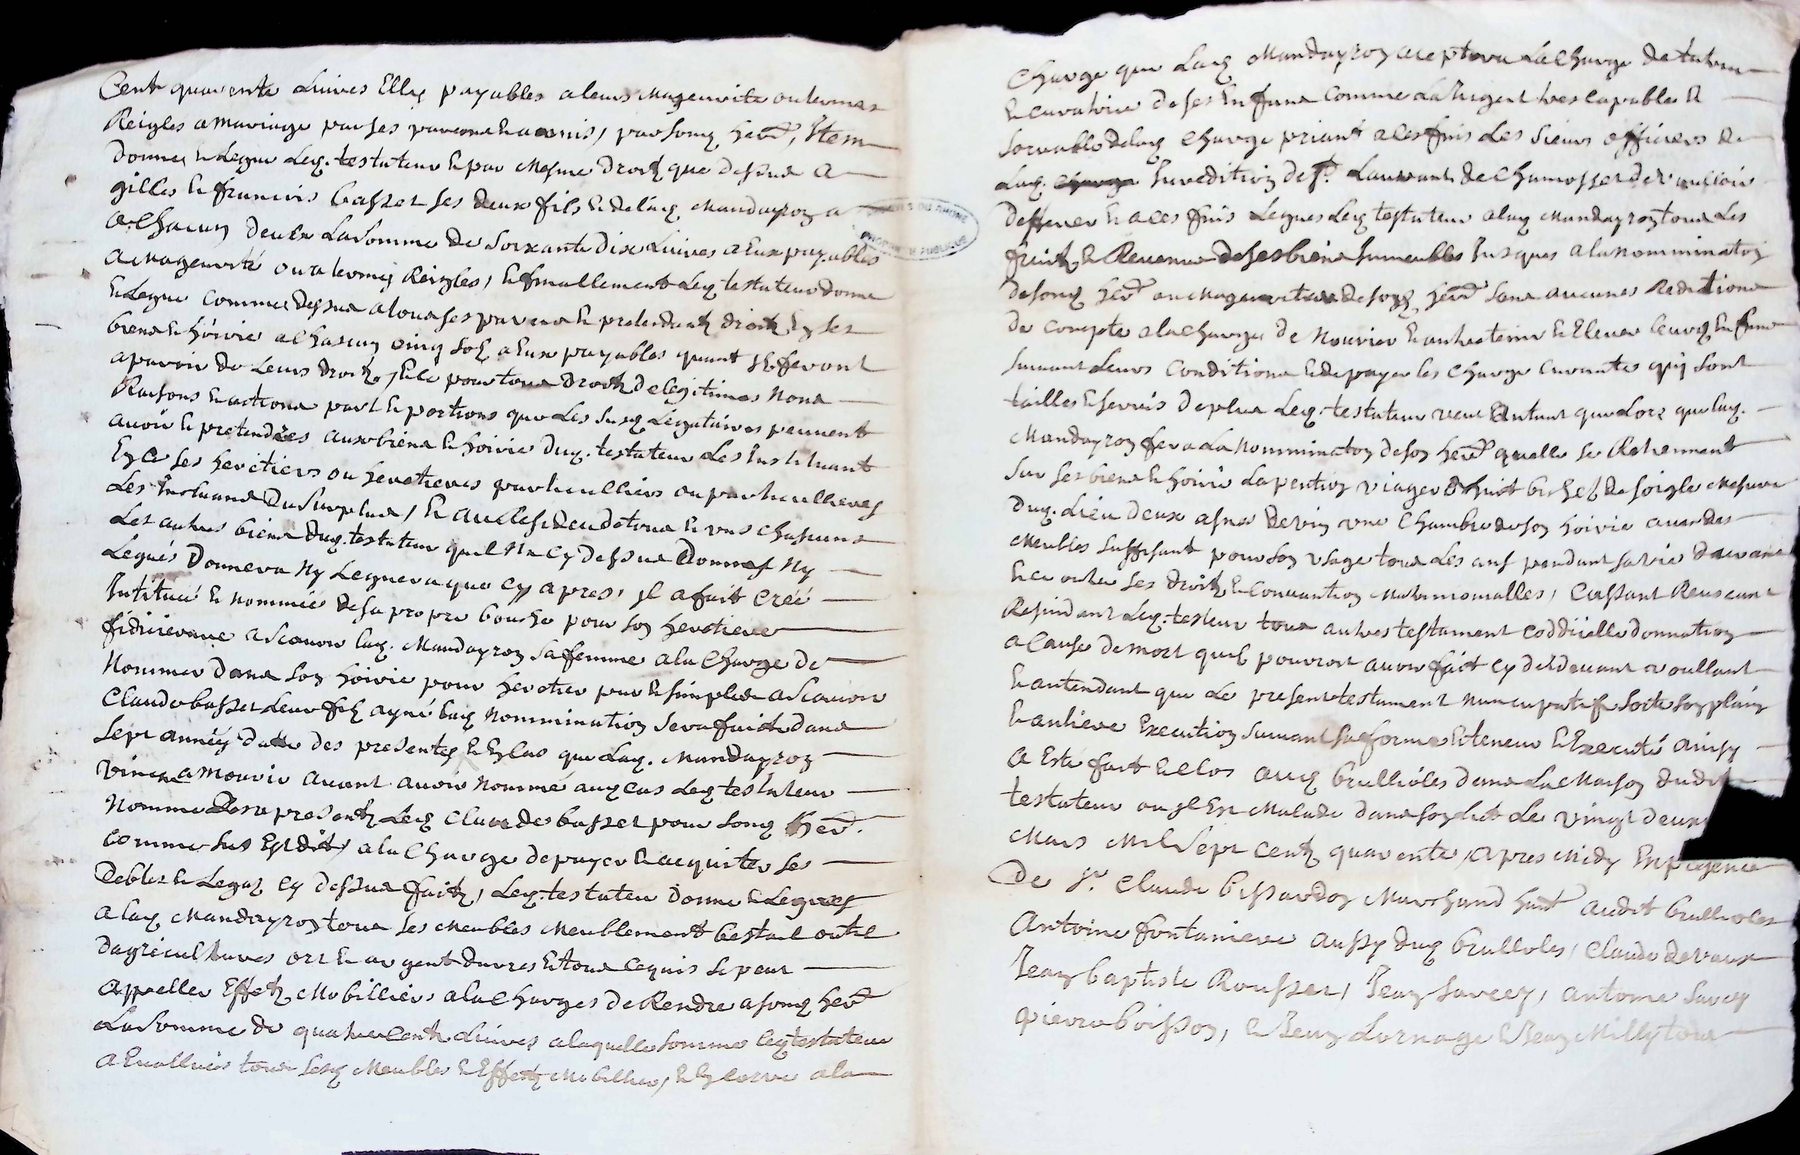 Cent quarente Livres Elles payables a leurs Mageurite ou termes
Reigles a mariage par ses parans Et amis, par sond herr, Item
donne et legue Led. testateur Et par Mesme droit que dessus a
gilles Et francois basset ses deux fils Et de lad. Mandayron a
a Chacun deulx La Somme de Soixante dix Livres a Eux payables
a Mageurité ou a termes Reigles, Et finallement Led. testateur donne
Et Legue Comme dessus a tous ses parans Et pretendantz droit En ses
biens Et hoirie a Chascun cinq solz a Eux payables quant Ilz feront
aparoir de Leurs droitz, Et Ce pour tous droitz de legitimes Noms
Raisons Et actions part Et portions que Les Susd. Légataires peuvent
avoir Et pretendres aux biens Et hoirie dud. testateur Les Instituant
En Ce ses heretiers ou heretieres particulliers ou particullieres
Les Excluant du Surplus, Et au Resideu de tous Et uns Chascuns
Les autres biens dud. testateur quil N'a Cy dessus donnes Ny
Legués donnera Ny Leguera que Cy apres, Il a fait Créé
Institué Et nommée de sa propre bouche pour son heretiere
fidicieraire a Scavoir lad. Mandayron sa femme a la Charge de
Nommer dans son hoirie pour heretier pur Et simple a Scavoir
Claude basset leur filz ayné lad. Nommination sera faite dans
Sept années datte des presentes Et En Cas que Lad. Mandayron
Vincse a mourir avant avoir nommé aud. cas Led. testateur
Nomme des a presentz Led. Claude basset pour sond. herr.
Comme sus Est dit, a la Charge de payer Et acquiter ses
debtes Et Legatz Cy dessus faitz, Led. testateur donne Et Legues
a lad. Mandayron tous ses Meubles Meublement bestail outil
dagricultures or Et argent danres Et tous Cequis se peut
appeller Effetz Mobilliers a la Charges de Rendre a sond. herr
La Somme de quatre Centz Livres a laquelle somme led. testateur
a Evallués tous sesd. Meubles Et Effetz Mobilliers, Et En Corre a la
Charge que Lad. Mandayron aceptera La Charge de tutrice
Et curatrice de ses Enfans Comme La Jugent tres Capables Et
Solvable de lad. Charge priant a Ces fins Les Sieurs officiers de
Lad. Juredition de St. Laurant de Chamosset de
defferer Et a Ces fins Legues Led. testateur a lad. Mandayron tous Les
fruitz Et Revenus de ses biens Immeubles Jusques a la nommination
de sond. herr ou Mageurites de sond. herr sans aucunes Redition
de Compte a la Charge de Nourrir Et antretenir Et Elever leurd. Enfans
Suivant Leurs Conditions Et de payer les Charge Courantes quy sont
tailles Et servis de plus Led. testateur veut Entant que Lors que lad.
Mandayron fera La nommination de son herr quelle se Retiennent
Sur ses biens Et hoirie La pention viager d'huit bichet de soigle Mesure
dud. Lieu deux asnes de vin une Chambre de son hoirie avec des
Meubles Suffisant pour son usage tous Les ans pendant sa vie durant
Et Ce outre ses droitz Et Convantion Matrimonialles, Cassant Revocant
Resindant Led. testeur tous autres testament Coddicille donnation
a Cause de mort quil pourroit avoir fait Cy de devant voullant
Et antendant que Le present testament nuncupatif sorte son plain
Et antiere Execution Suivant sa forme Et teneur Et Executé ainsy
a Este fait Et Clos aud. brullioles dans La Maison dudit
testateur ou Il Est Malade dans son lict Le vingt deux
Mars Mil Sept Centz quarente, apres Midy En presence
De Sr. Claude bissardon Marchand habt audit brullioles
Antoine fontaniere aussy dud. brulloles, Claude devaux
Jean baptiste Rousset, Jean Sarcey, antoine Sarcey
pierre boisson, Et Jean Lornage Et Jean Milly tous